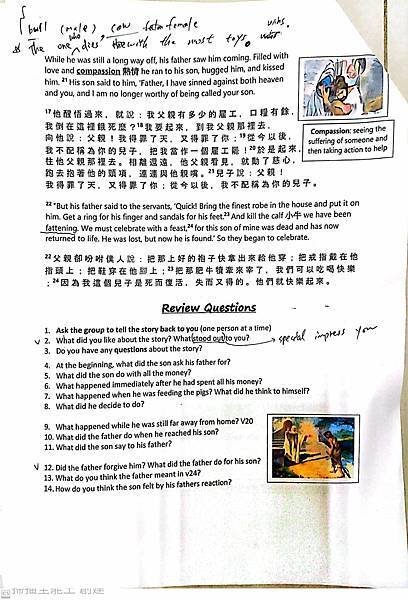 bull (male) cow female
The one who dies with the most toys wins.
While he was still a long way off, his father saw him coming. Filled with
love and compassion 熱情 he ran to his son, hugged him, and kissed
him. 21 His son said to him, 'Father, I have sinned against both heaven
and you, and I am no longer worthy of being called your son.
Compassion: seeing the
suffering of someone and
then taking action to help
17他醒悟過來，就說：我父親有多少的雇工，口糧有餘，
我倒在這裡餓死麼？18我要起來，到我父親那裡去，
向他說：父親！我得罪了天，又得罪了你；19從今以後，
我不配稱為你的兒子，把我當作一個雇工罷！20於是起來，
往他父親那裡去。相離還遠，他父親看見，就動了慈心，
跑去抱著他的頸項，連連與他親嘴。21兒子說：父親！
我得罪了天，又得罪了你；從今以後，我不配稱為你的兒子。
22 "But his father said to the servants, 'Quick! Bring the finest robe in the house and put it on
him. Get a ring for his finger and sandals for his feet.23 And kill the calf 小牛 we have been
fattening. We must celebrate with a feast,24 for this son of mine was dead and has now
returned to life. He was lost, but now he is found.' So they began to celebrate.
22父親卻吩咐僕人說：把那上好的袍子快拿出來給他穿；把戒指戴在他
指頭上；把鞋穿在他腳上；23把那肥牛犢牽來宰了，我們可以吃喝快樂
；24因為我這個兒子是死而復活，失而又得的。他們就快樂起來。
Review Questions
1. Ask the group to tell the story back to you (one person at a time)
√ 2. What did you like about the story? What stood out to you? special impress you
3. Do you have any questions about the story?
4. At the beginning, what did the son ask his father for?
5. What did the son do with all the money?
6. What happened immediately after he had spent all his money?
7. What happened when he was feeding the pigs? What did he think to himself?
8. What did he decide to do?
9. What happened while he was still far away from home? V20
10. What did the father do when he reached his son?
11. What did the son say to his father?
√ 12. Did the father forgive him? What did the father do for his son?
13. What do you think the father meant in v24?
14. How do you think the son felt by his fathers reaction?